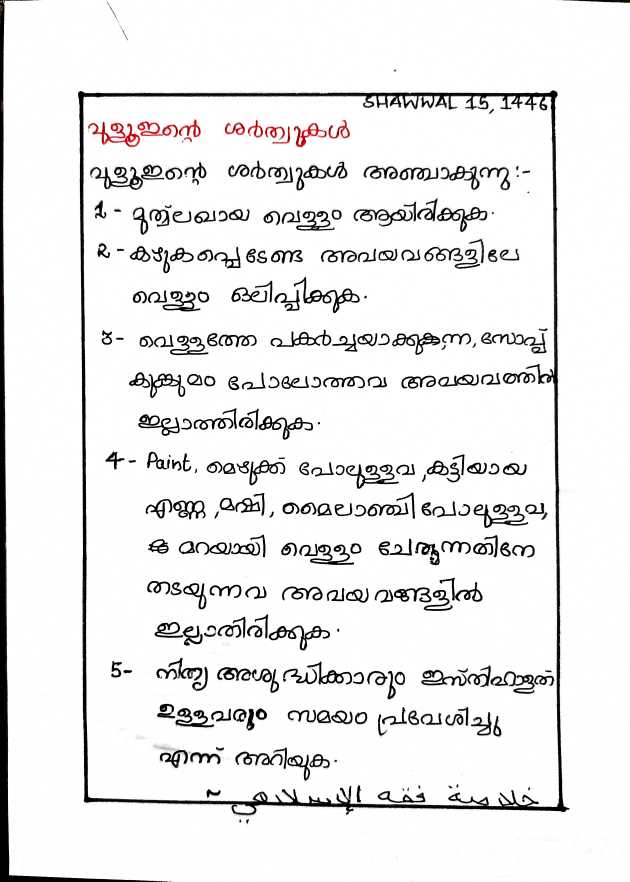 SHAWWAL 15, 1446
വുളൂഇന്റെ ശർത്വുകൾ
വുളൂഇന്റെ ശർത്വുകൾ അഞ്ചാകുന്നു:-
1 - മുത്വ്‌ലഖായ വെള്ളം ആയിരിക്കുക.
2 - കഴുകപ്പെടേണ്ട അവയവങ്ങളിലേ
വെള്ളം ഒലിപ്പിക്കുക.
3- വെള്ളത്തേ പകർച്ചയാക്കുകുന്ന, സോപ്പ്
കുങ്കുമം പോലോത്തവ അവയവത്തിൽ
ഇല്ലാത്തിരിക്കുക.
4 - Paint, മെഴുക്ക് പോലുള്ളവ, കട്ടിയായ
എണ്ണ, മഷി, മൈലാഞ്ചി പോലുള്ളവ,
മറയായി വെള്ളം ചേരുന്നതിനേ
തടയുന്നവ അവയവങ്ങളിൽ
ഇല്ലാതിരിക്കുക.
5- നിത്യ അശുദ്ധിക്കാരും ഇസ്തിഹാളത്
ഉള്ളവരും സമയം പ്രവേശിച്ചു
എന്ന് അറിയുക.
خلاصة فقه الإسلامي ~